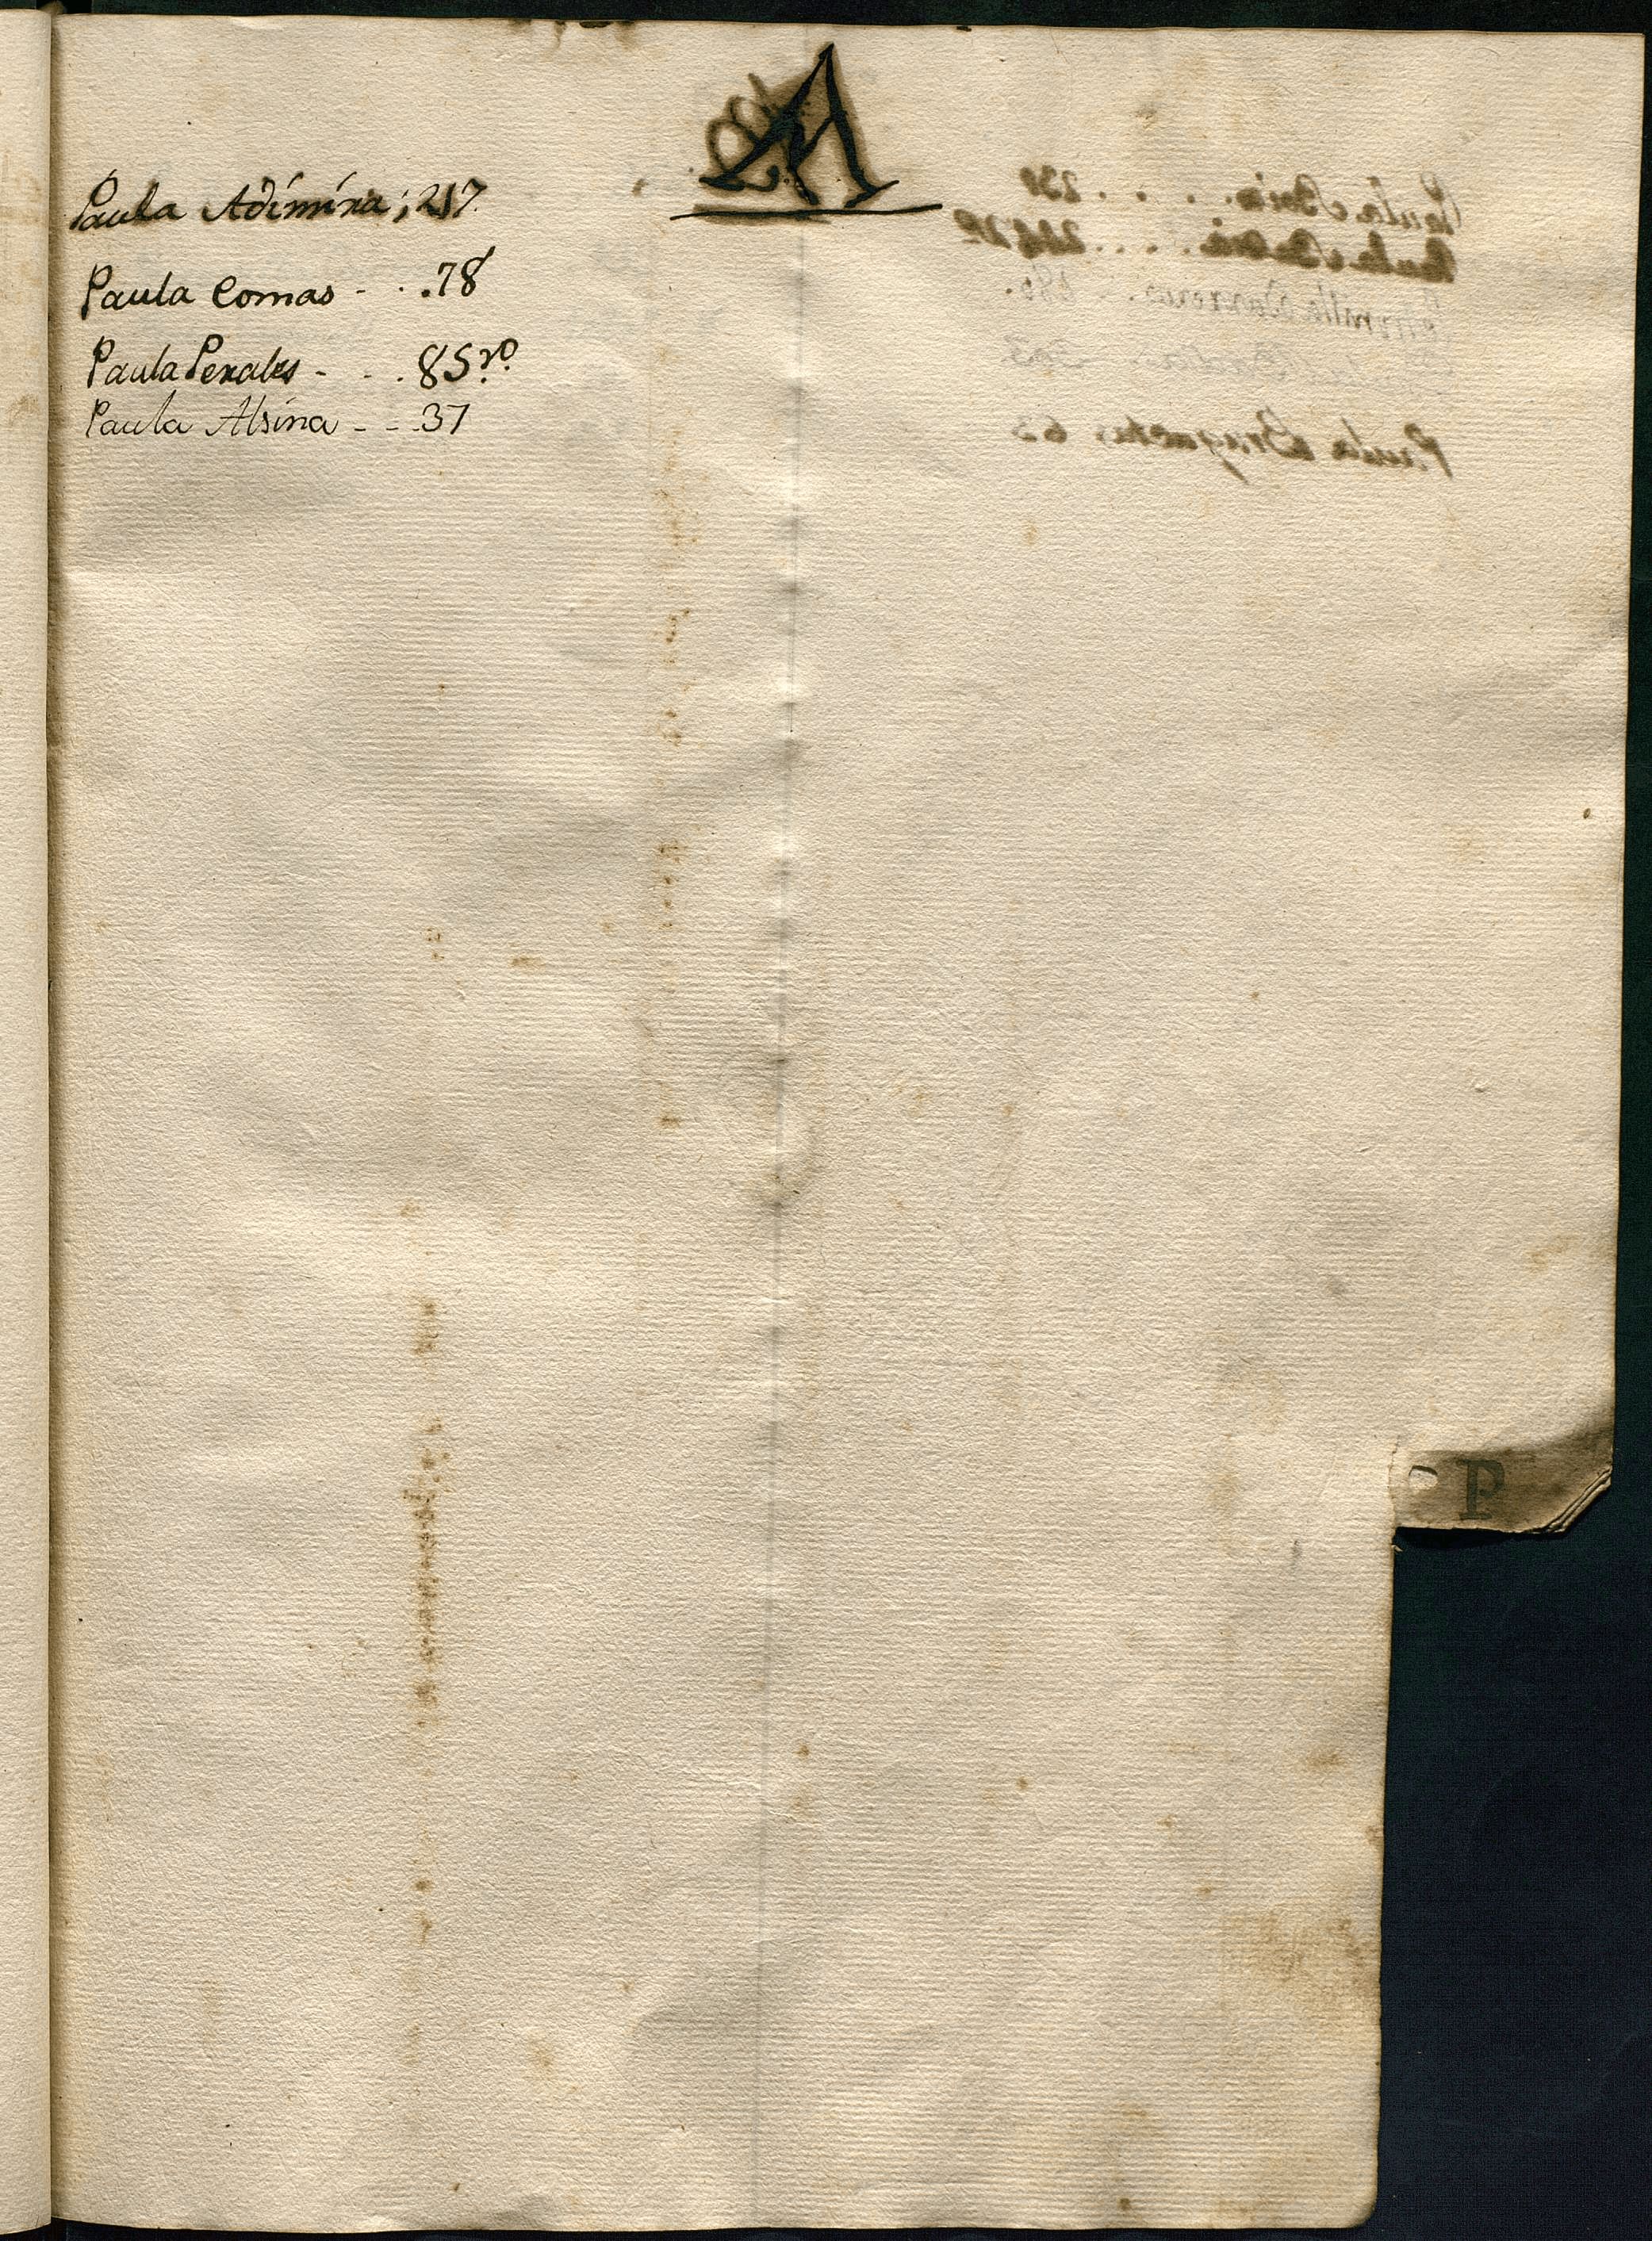 A
Paula Adimina; 217
Paula Comas - . .78
Paula Perales - . . 85 vo.
Paula Alsina - - - 37
P